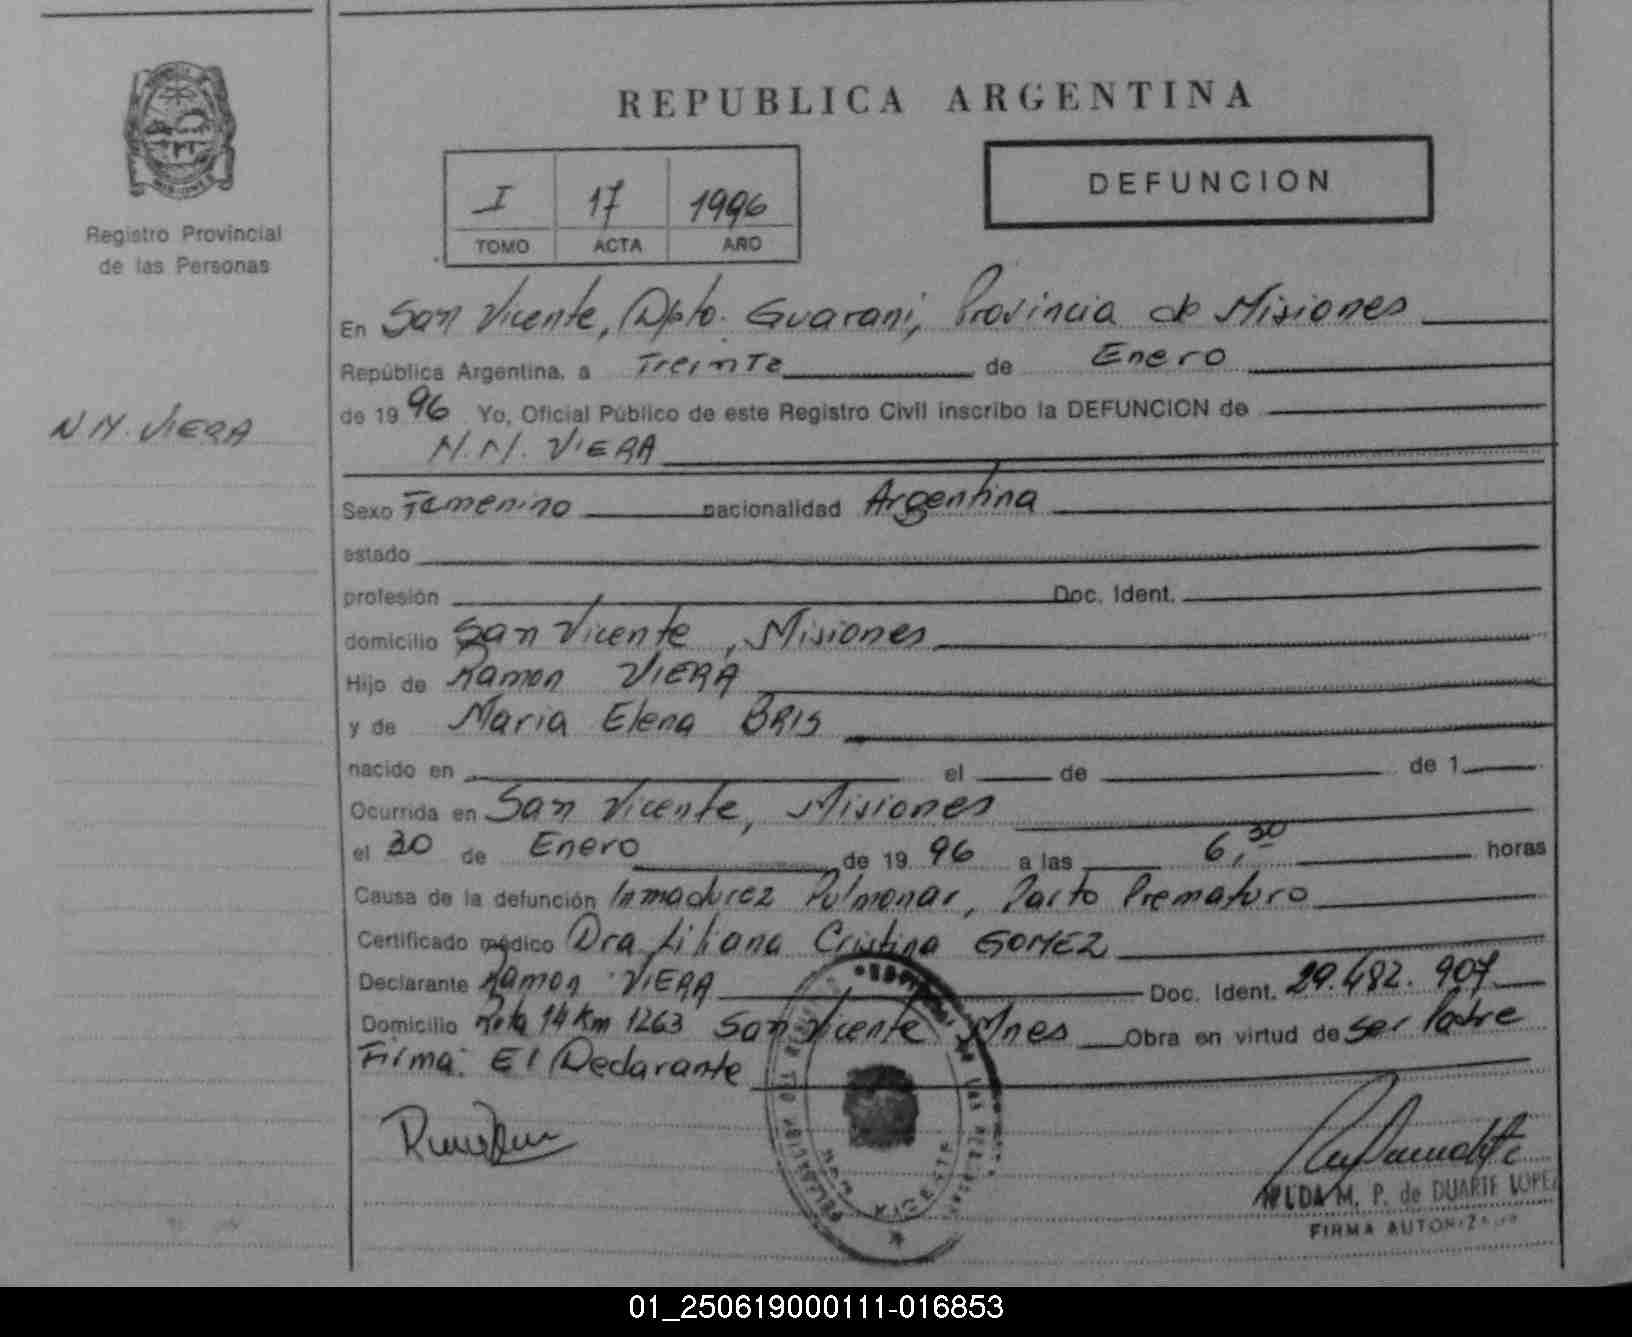 REPUBLICA ARGENTINA
DEFUNCION
I 17 1996
TOMO ACTA AÑO
Registro Provincial
de las Personas
N N. VIERA
En San Vicente, Dpto. Guarani, Provincia de Misiones
República Argentina, a Treinta de Enero
de 1996 Yo, Oficial Público de este Registro Civil inscribo la DEFUNCION de
N.N. VIERA
Sexo Femenino nacionalidad Argentina
estado
profesión Doc. Ident.
domicilio San Vicente, Misiones
Hijo de Ramon VIERA
y de Maria Elena BRIS
nacido en el de de 1
Ocurrida en San Vicente, Misiones
el 30 de Enero de 1996 a las 6,30 horas
Causa de la defunción Inmadurez Pulmonar, Parto Prematuro
Certificado médico Dra Liliana Cristina GOMEZ
Declarante Ramon VIERA Doc. Ident. 29.482.907
Domicilio Ruta 14 Km 1263 San Vicente Mnes Obra en virtud de ser Padre
Firma: El Declarante
M. P. de DUARTE LOPEZ
FIRMA AUTORIZADA
SAN VICENTE
01_250619000111-016853